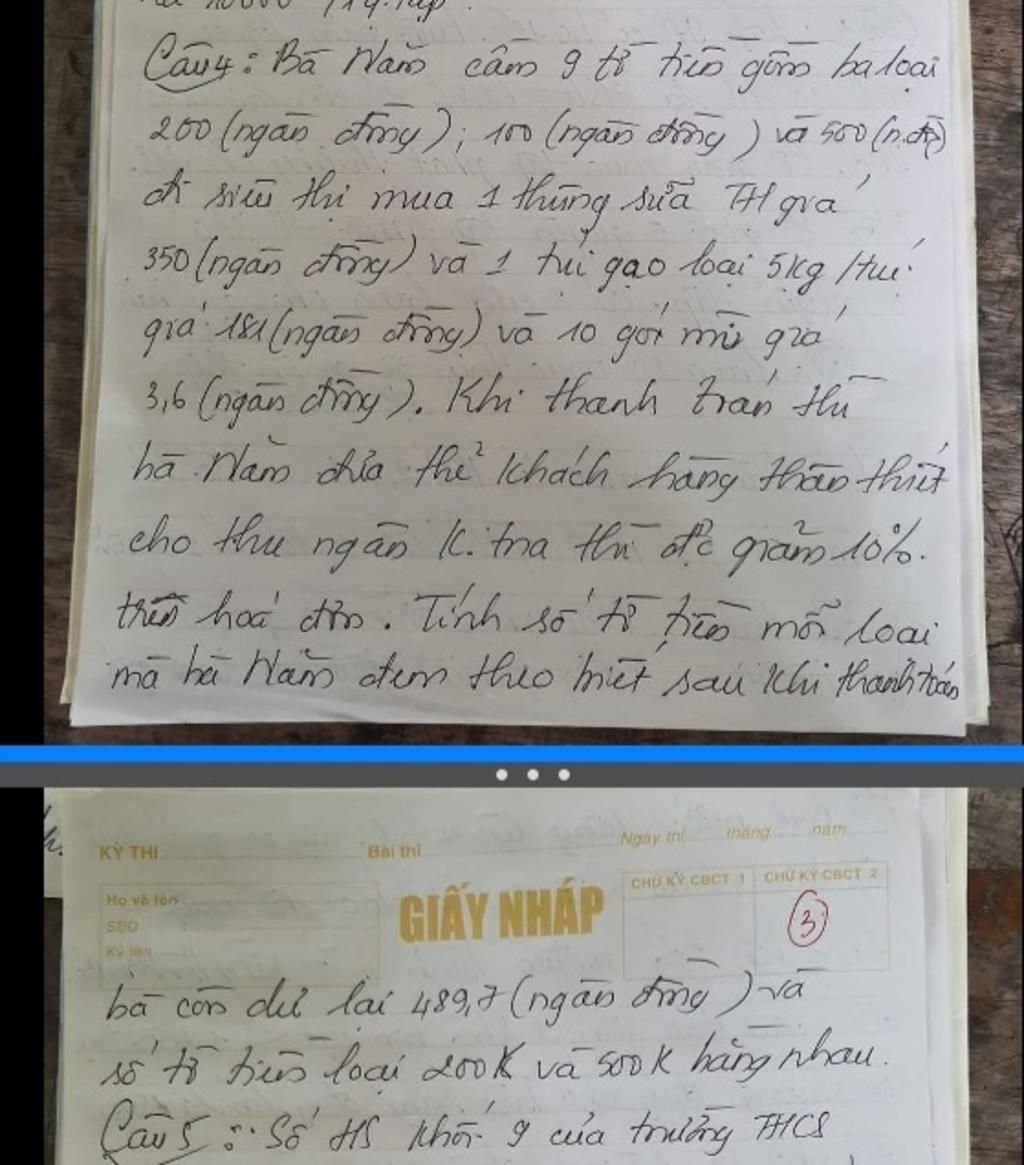 Câu 4: Bà Năm cầm 9 tờ tiền gồm ba loại
200 (ngàn đồng); 100 (ngàn đồng) và 500 (n.đồng)
đi siêu thị mua 1 thùng sữa TH giá
350 (ngàn đồng) và 1 túi gạo loại 5kg/túi
giá 181 (ngàn đồng) và 10 gói mì giá
3,6 (ngàn đồng). Khi thanh toán thì
bà Năm đưa thẻ khách hàng thân thiết
cho thu ngân k.tra thì đc giảm 10%
trên hoá đơn. Tính số tờ tiền mỗi loại
mà bà Năm đem theo biết sau khi thanh toán
KỲ THI
Bài thi
Ngày thi tháng năm
Họ và tên :
SBD :
Ký tên
GIẤY NHÁP
CHỮ KÝ CBCT 1 CHỮ KÝ CBCT 2
3
bà còn dư lại 489,7 (ngàn đồng) và
số tờ tiền loại 200K và 500K bằng nhau.
Câu 5: Số HS khối 9 của trường THCS